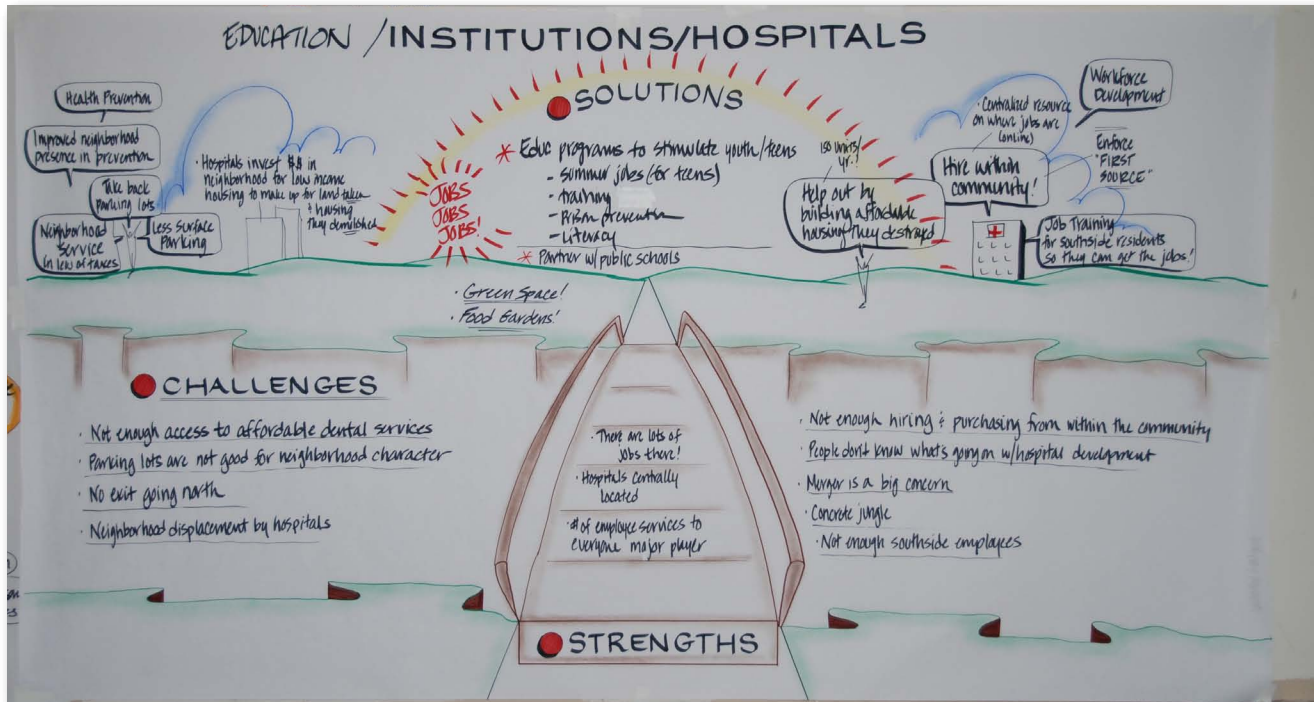 EDUCATION / INSTITUTIONS/HOSPITALS
SOLUTIONS
Health Prevention
Improved neighborhood
presence in prevention
Take back
parking lots
Neighborhood
Service
in lew of taxes
Less Surface
Parking
· Hospitals invest $$ in
neighborhood for low income
housing to make up for land taken
& housing
they demolished
JOBS
JOBS
JOBS!
* Educ programs to stimulate youth/teens
- summer jobs (for teens)
- training
- prevention
- Literacy
* Partner w/public schools
150 units/
yr.!
Help out by
building affordable
housing they destroyed
· Centralized resource
on where jobs are
(online)
Workforce
Development
Hire within
community!
Enforce
"FIRST
SOURCE"
Job Training
for southside residents
so they can get the jobs!
· Green Space!
· Food Gardens!
CHALLENGES
· Not enough access to affordable dental services
· Parking lots are not good for neighborhood character
· No exit going north
· Neighborhood displacement by hospitals
· There are lots of
jobs there!
· Hospitals centrally
located
· # of employee services to
everyone major player
· Not enough hiring & purchasing from within the community
· People don't know what's going on w/hospital development
· Merger is a big concern
· Concrete jungle
· Not enough southside employees
STRENGTHS